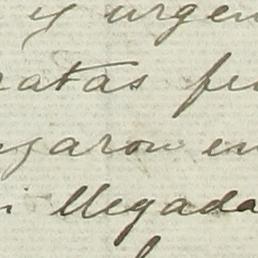 y urgen
ratas fu
garon en
i llegada